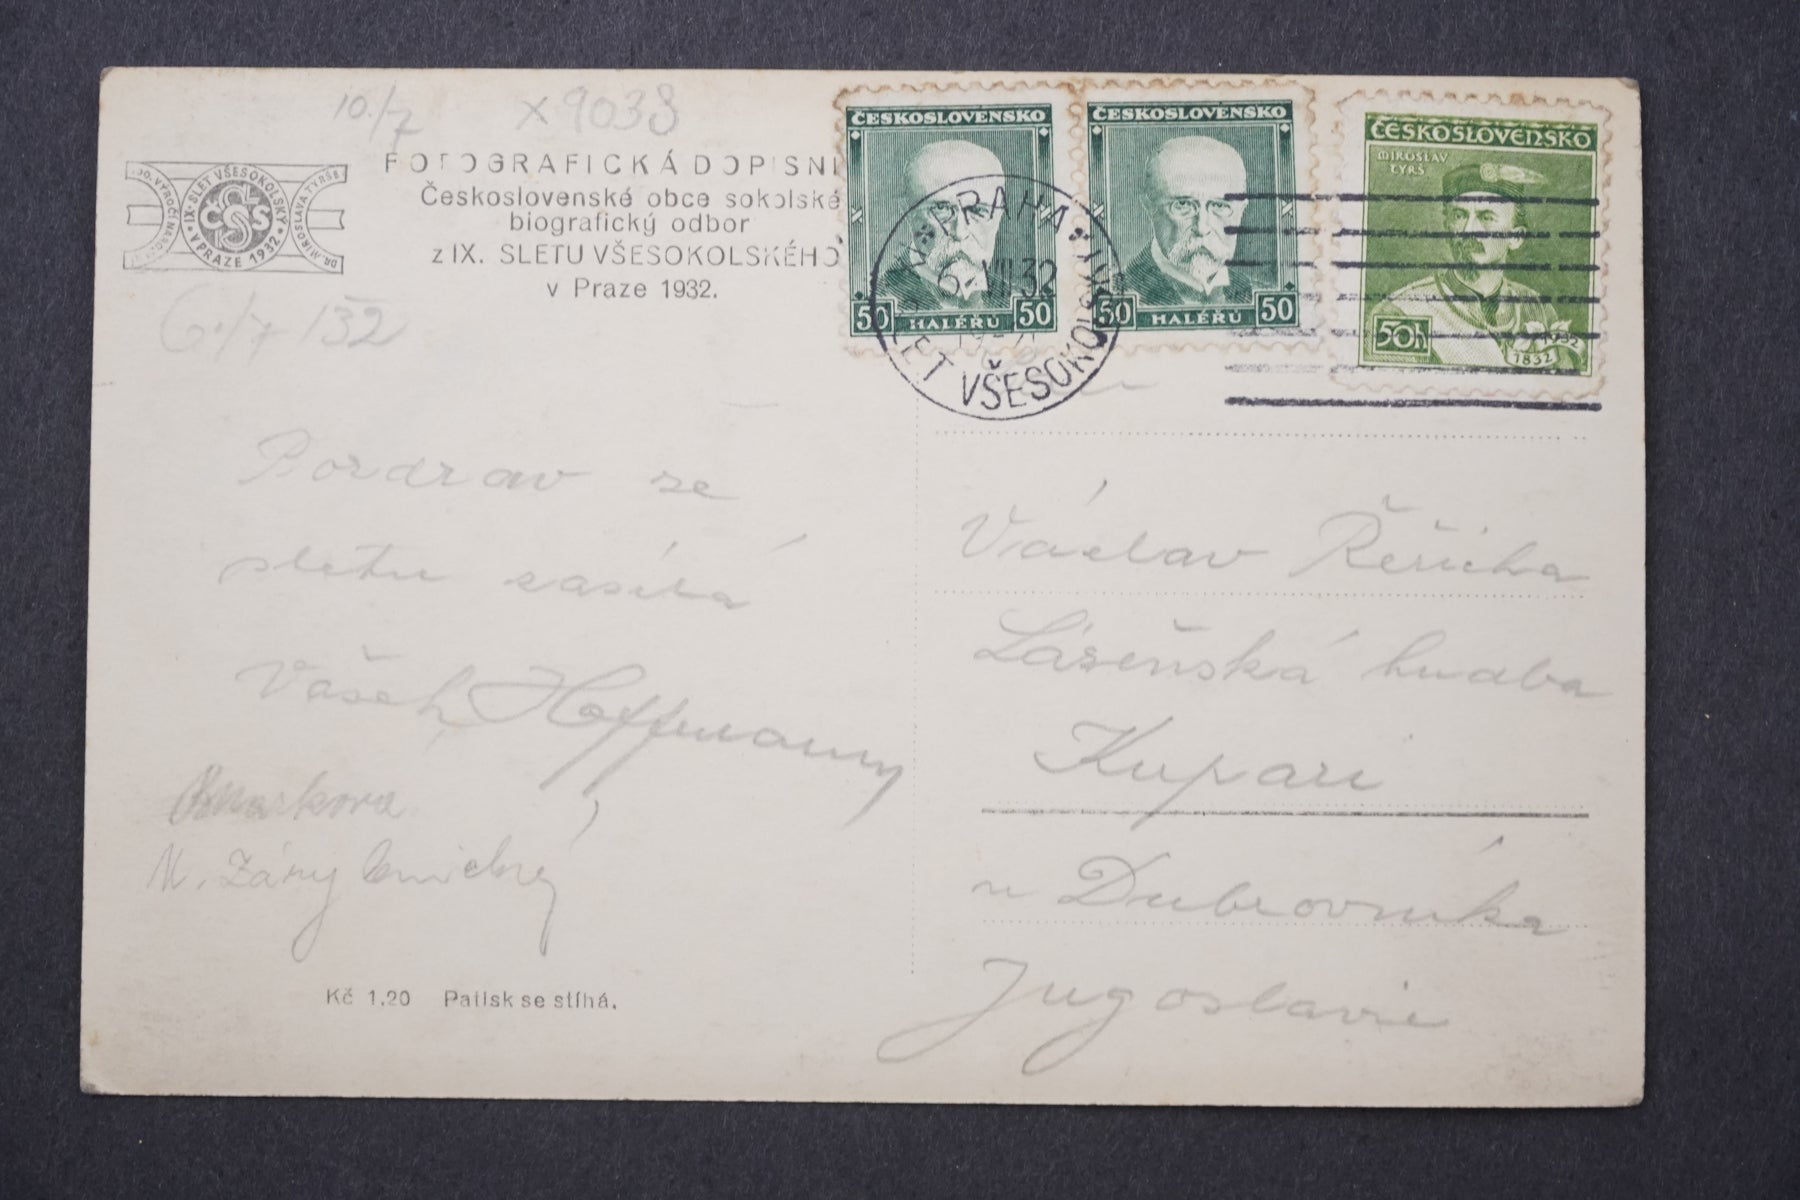 10./7
x 9038
FOTOGRAFICKÁ DOPISNI
Československé obce sokolské
biografický odbor
z IX. SLETU VŠESOKOLSKÉHO
v Praze 1932.
IX. SLET VŠESOKOLSKÝ
V PRAZE 1932
ČSOS
DR. MIROSLAVA TYRŠE
6./7 132
ČESKOSLOVENSKO
50 HALÉŘŮ 50
ČESKOSLOVENSKO
50 HALÉŘŮ 50
ČESKOSLOVENSKO
MIROSLAV
TYRŠ
50h
1832
1932
PRAHA
6. VII 32
SLET VŠESOKOLSKÝ
Pozdrav ze
sletu zasílá
Vašek Hoffmann
Václav Řeřicha
Lázeňská hudba
Kupari
u Dubrovníka
Jugoslavie
Kč 1.20 Patisk se stíhá.